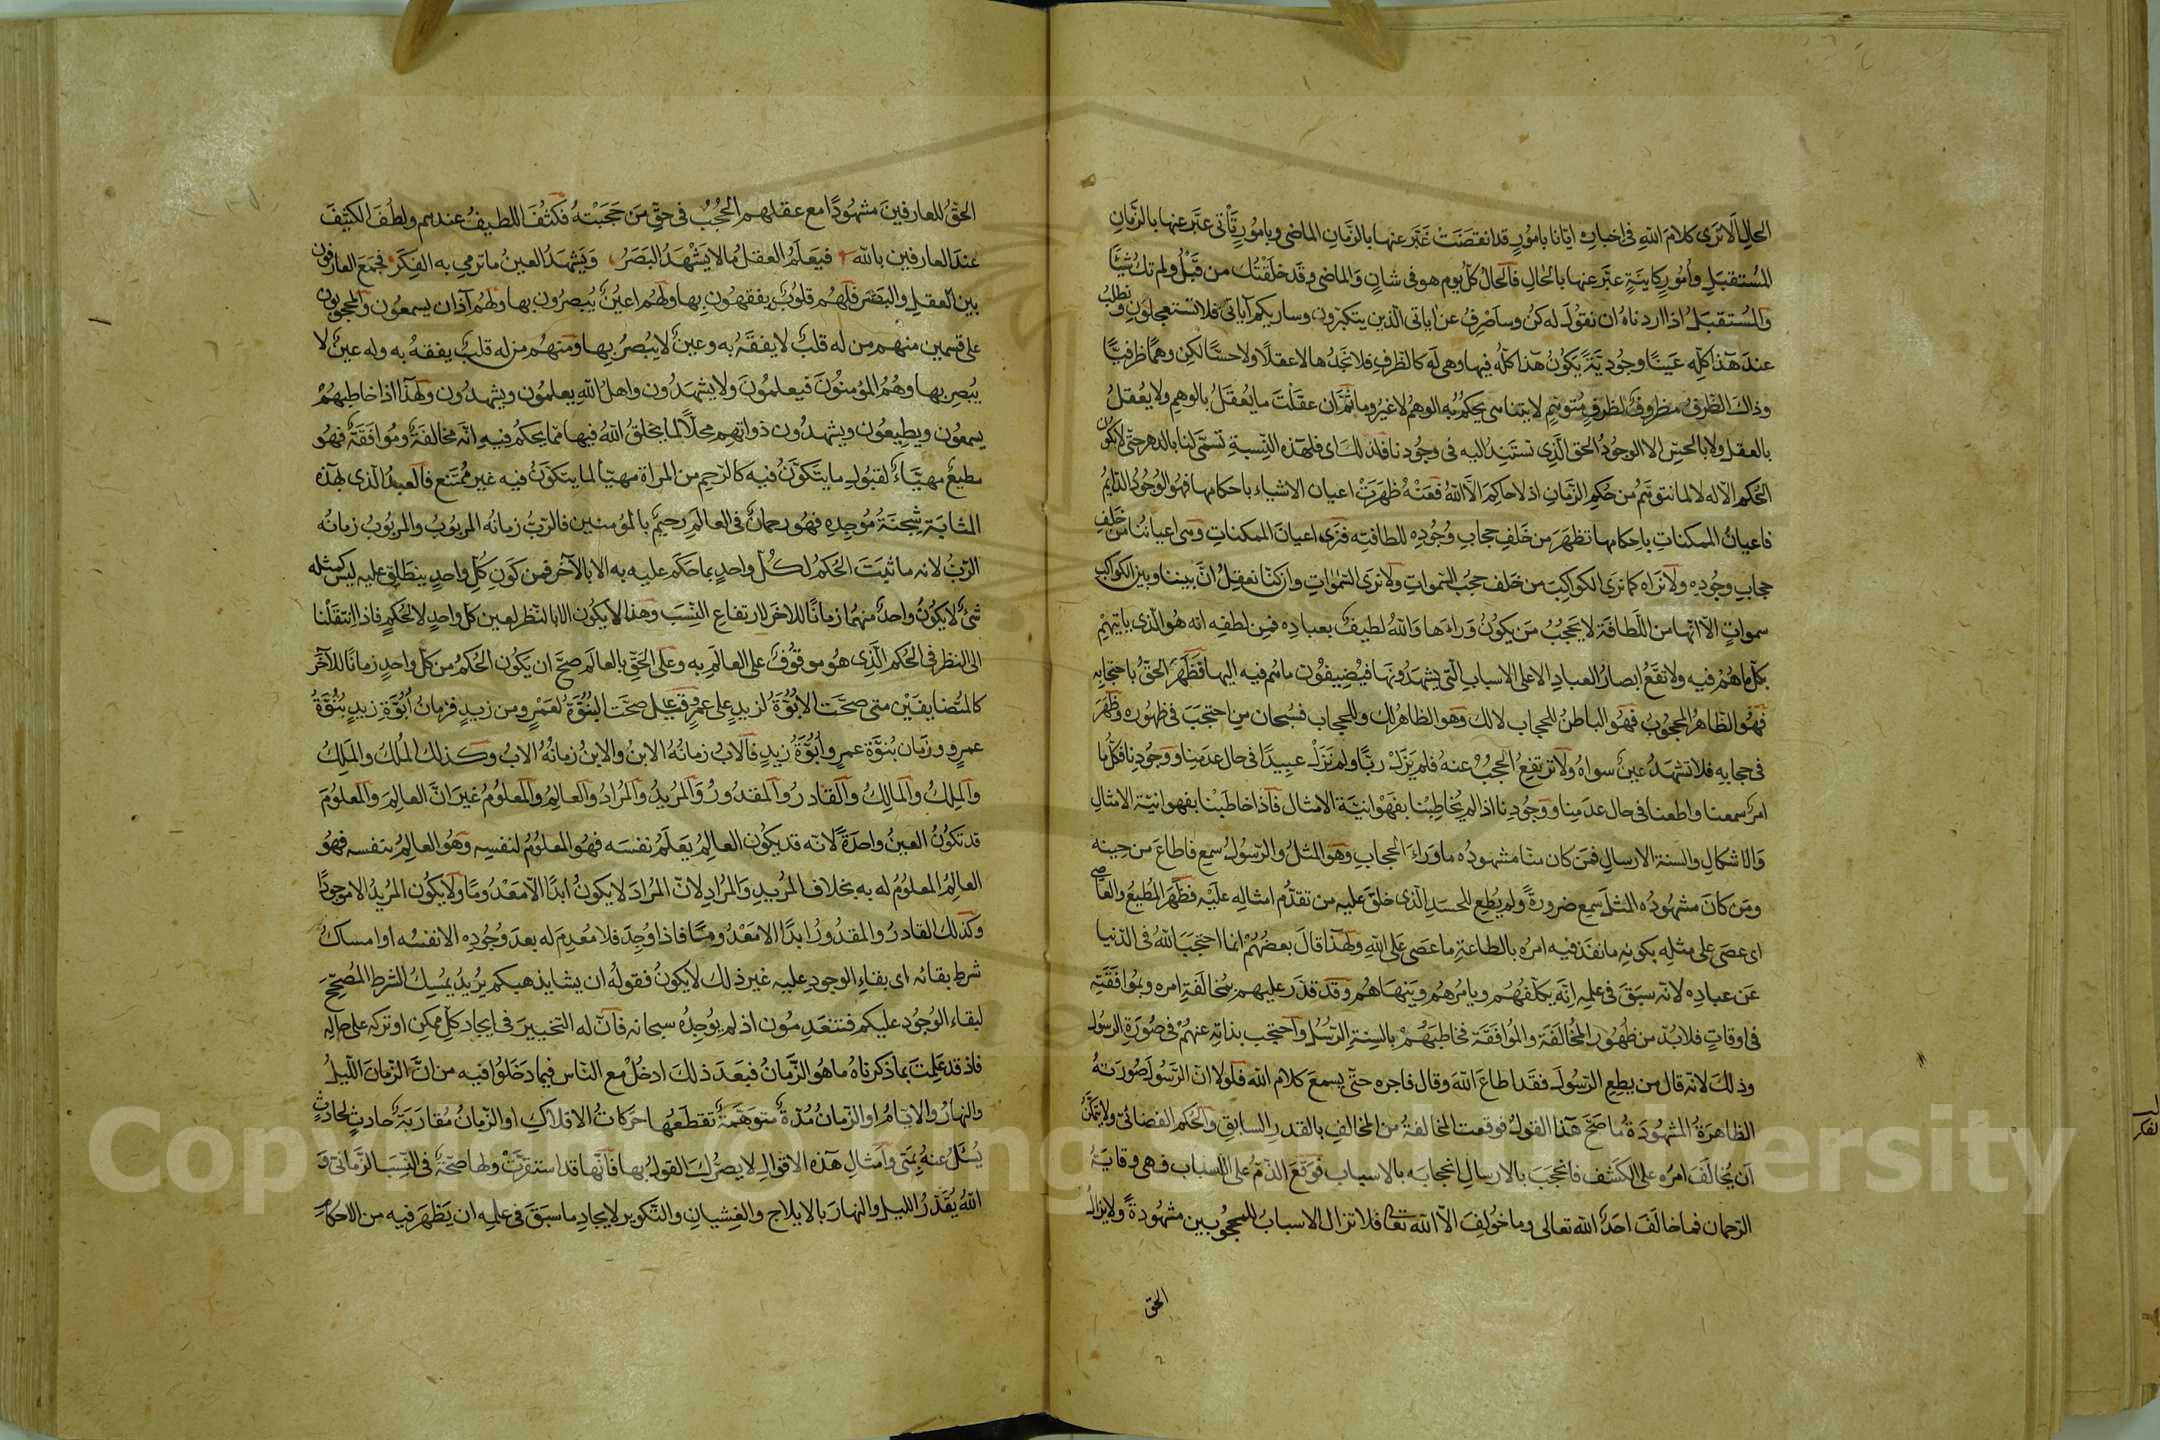 الحال الا ترى كلام الله فى اخباره ايانا بامور قد انقضت عبر عنها بالزمان الماضى وبامور تأتى عبر عنها بالزمان
المستقبل وامور كاينة عبر عنها بالحال فالحال كل يوم هو فى شان والماضى وقد خلقتك من قبل ولم تك شيئا
والمستقبل اذا اردناه ان نقول له كن وساصرف عن اياتى الذين يتكبرون وساريكم آياتى فلا تستعجلون ونطلب
عند هذا كله عينا وجودية يكون هذا كله فيها وهى له كالظرف فلا نجدها لا عقلا ولا حسا لكن وهما ظرفيا
وذلك الظرف مظروف لظرف متوهم لا يتناهى يحكم به الوهم لا غير وما ثم ان عقلت ما يعقل بالوهم ولا يعقل
بالعقل ولا بالحس الا الوجود الحق الذى نستند اليه فى وجودنا فلهذه النسبة تسمى لنا بالدهر حتى لا يكون
الحكم الا له لا لما نتوهم من حكم الزمان اذ لا حاكم الا الله فعنه ظهرت اعيان الاشياء باحكامها فهو الوجود الدايم
فاعيان الممكنات باحكامها تظهر من خلف حجاب وجوده للطافته فنرى اعيان الممكنات وهى اعياننا من خلف
حجاب وجوده ولا نراه كما نرى الكواكب من خلف حجب السموات ولا نرى السموات وان كنا نعقل ان بيننا وبين الكواكب
سموات الا انها من اللطافة لا يحجب من يكون وراءها والله لطيف بعباده فمن لطفه انه هو الذى ياتيهم
بكل ما هم فيه ولا تقع ابصار العباد الا على الاسباب التى يشهدونها فيضيفون ما هم فيه اليها فظهر الحق باحتجابه
فهو الظاهر المحجوب فهو الباطن للحجاب لا لك وهو الظاهر لك وللحجاب فسبحان من احتجب فى ظهوره وظهر
فى حجابه فلا تشهد عين سواه ولا ترتفع الحجب عنه فلم يزل ربا ولم نزل عبيدا فى حال عدمنا ووجودنا فكل ما
امر سمعنا واطعنا فى حال عدمنا ووجودنا اذا لم يخاطبنا بفهوانية الامثال فاذا خاطبنا بفهوانية الامثال
والاشكال والسنة الارسال فمن كان منا مشهوده ما وراء الحجاب وهو المثل والرسول سمع فاطاع من حينه
ومن كان مشهوده المثل سمع ضرورة ولم يطع للحسد الذى خلق عليه من تقدم امثاله عليه فظهر المطيع والعاصى
اى عصى على مثله بكونه ما نفذ فيه امره بالطاعة ما عصى على الله ولهذا قال بعضهم انما احتجب الله فى الدنيا
عن عباده لانه سبق فى علمه انه يكلفهم ويامرهم وينهاهم وقد قدر عليهم بمخالفة امره وبموافقته
فى اوقات فلا بد من ظهور المخالفة والموافقة فخاطبهم بالسنة الرسل واحتجب بذاته عنهم فى صورة الرسول
وذلك لانه قال من يطع الرسول فقد اطاع الله وقال فاجره حتى يسمع كلام الله فلولا ان الرسول صورته
الظاهرة المشهودة ما صح هذا القول فوقعت المخالفة من المخالف بالقدر السابق والحكم القضائى ولا يتمكن
ان يخالف امره على الكشف فانحجب بالارسال انحجابه بالاسباب فوقع الذم على الاسباب فهى وقاية
الرحمان فما خالف احد الله تعالى وما خولف الا الله تعالى فلا تزال الاسباب للمحجوبين مشهودة ولا يزال
الحق
الحق للعارفين مشهودا مع عقلهم الحجب فى حق من حجبته فكثف اللطيف عندهم ولطف الكثيف
عند العارفين بالله فيعلم العقل ما لا يشهد البصر ويشهد العين ما ترمى به الفكر فجمع العارفون
بين العقل والبصر فلهم قلوب يفقهون بها ولهم اعين يبصرون بها ولهم آذان يسمعون والمحجوبون
على قسمين منهم من له قلب لا يفقه به وعين لا يبصر بها ومنهم من له قلب يفقه به وله عين لا
يبصر بها وهم المؤمنون فيعلمون ولا يشهدون واهل الله يعلمون ويشهدون ولهذا اذا خاطبهم
يسمعون ويطيعون ويشهدون ذواتهم محلا لما يخلق الله فيها مما يحكم فيه انه مخالفة وموافقة فهو
مطيع مهياء لقبول ما يتكون فيه كالرحم من المراة مهيا لما يتكون فيه غير ممتنع فالعبد الذى بهذه
المثابة شجنة موجده فهو رحمان فى العالم رحيم بالمؤمنين فالرب زمانه المربوب والمربوب زمانه
الرب لانه ما ثبت الحكم لكل واحد بما حكم عليه به الا بالآخر فمن كون كل واحد ينطلق عليه ليس كمثله
شئ لا يكون واحد منهما زمانا للاخر لارتفاع النسب وهذا لا يكون الا بالنظر لعين كل واحد لا لحكم فاذا انتقلنا
الى النظر فى الحكم الذى هو موقوف على العالم به وعلى الحق بالعالم صح ان يكون الحكم من كل واحد زمانا للآخر
كالمتضايفين متى صحت الابوة لزيد على عمرو قيل صحت البنوة لعمرو من زيد فزمان ابوة زيد بنوة
عمرو وزمان بنوة عمرو ابوة زيد فالاب زمانه الابن والابن زمانه الاب وكذلك الملك والملك
والملك والمالك والقادر والمقدور والمريد والمراد والعالم والمعلوم غير ان العالم والمعلوم
قد تكون العين واحدة لانه قد يكون العالم يعلم نفسه فهو المعلوم لنفسه وهو العالم بنفسه فهو
العالم المعلوم له به بخلاف المريد والمراد لان المراد لا يكون ابدا الا معدوما ولا يكون المريد الا موجودا
وكذلك القادر والمقدور ابدا الا معدوما فاذا وجد فلا معدم له بعد وجوده الا نفسه او امساك
شرط بقائه اى بقاء الوجود عليه غير ذلك لا يكون فقوله ان يشا يذهبكم يريد يمسك الشرط المصحح
لبقاء الوجود عليكم فتنعدمون اذ لم يوجده سبحانه فان له التخيير فى ايجاد كل ممكن او تركه على حاله
فاذ قد علمت بما ذكرناه ما هو الزمان فبعد ذلك ادخل مع الناس فيما دخلوا فيه من ان الزمان الليل
والنهار والايام او الزمان مدة متوهمة تقطعها حركات الافلاك او الزمان مقارنة حادث لحادث
يسئل عنه بمتى وامثال هذه الاقوال لا يضرك القول بها فانها قد استقرت ولها صحة فى النسب الزمانى و
الله يقدر الليل والنهار بالايلاج والغشيان والتكوير لايجاد ما سبق فى علمه ان يظهر فيه من الاحكام
Copyright © King Saud University